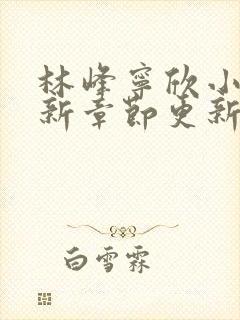 林峰寧欣小
新章節更新
白雪霖